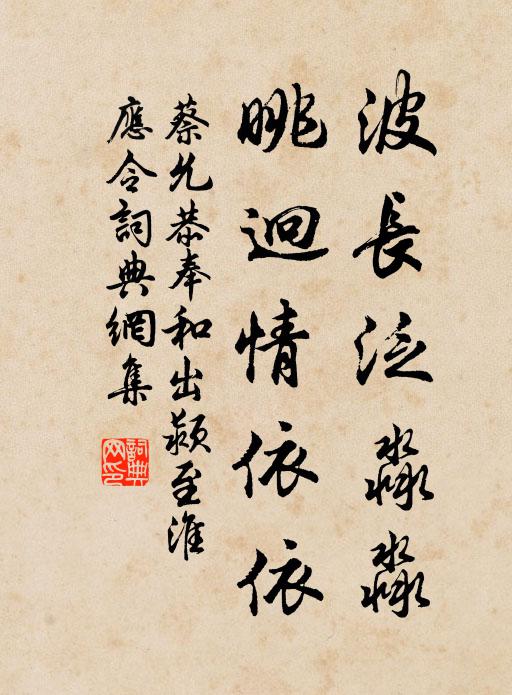 波長泛淼淼
眺迥情依依
蔡允恭奉和出潁至淮
應令詞典網集
詞典网印